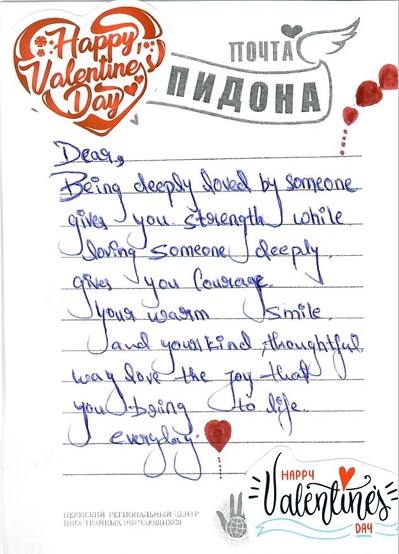 Happy
Valentine's
Day
ПОЧТА
ПИДОНА
Dear,
Being deeply loved by someone
gives you strength while
loving someone deeply.
gives you Courage.
your warm smile.
and your kind, thoughtful
way love the joy that
you bring to life.
everyday.
HAPPY
Valentine's
DAY
ПЕРМСКИЙ РЕГИОНАЛЬНЫЙ ЦЕНТР
ИНОСТРАННЫХ ОБУЧАЮЩИХСЯ